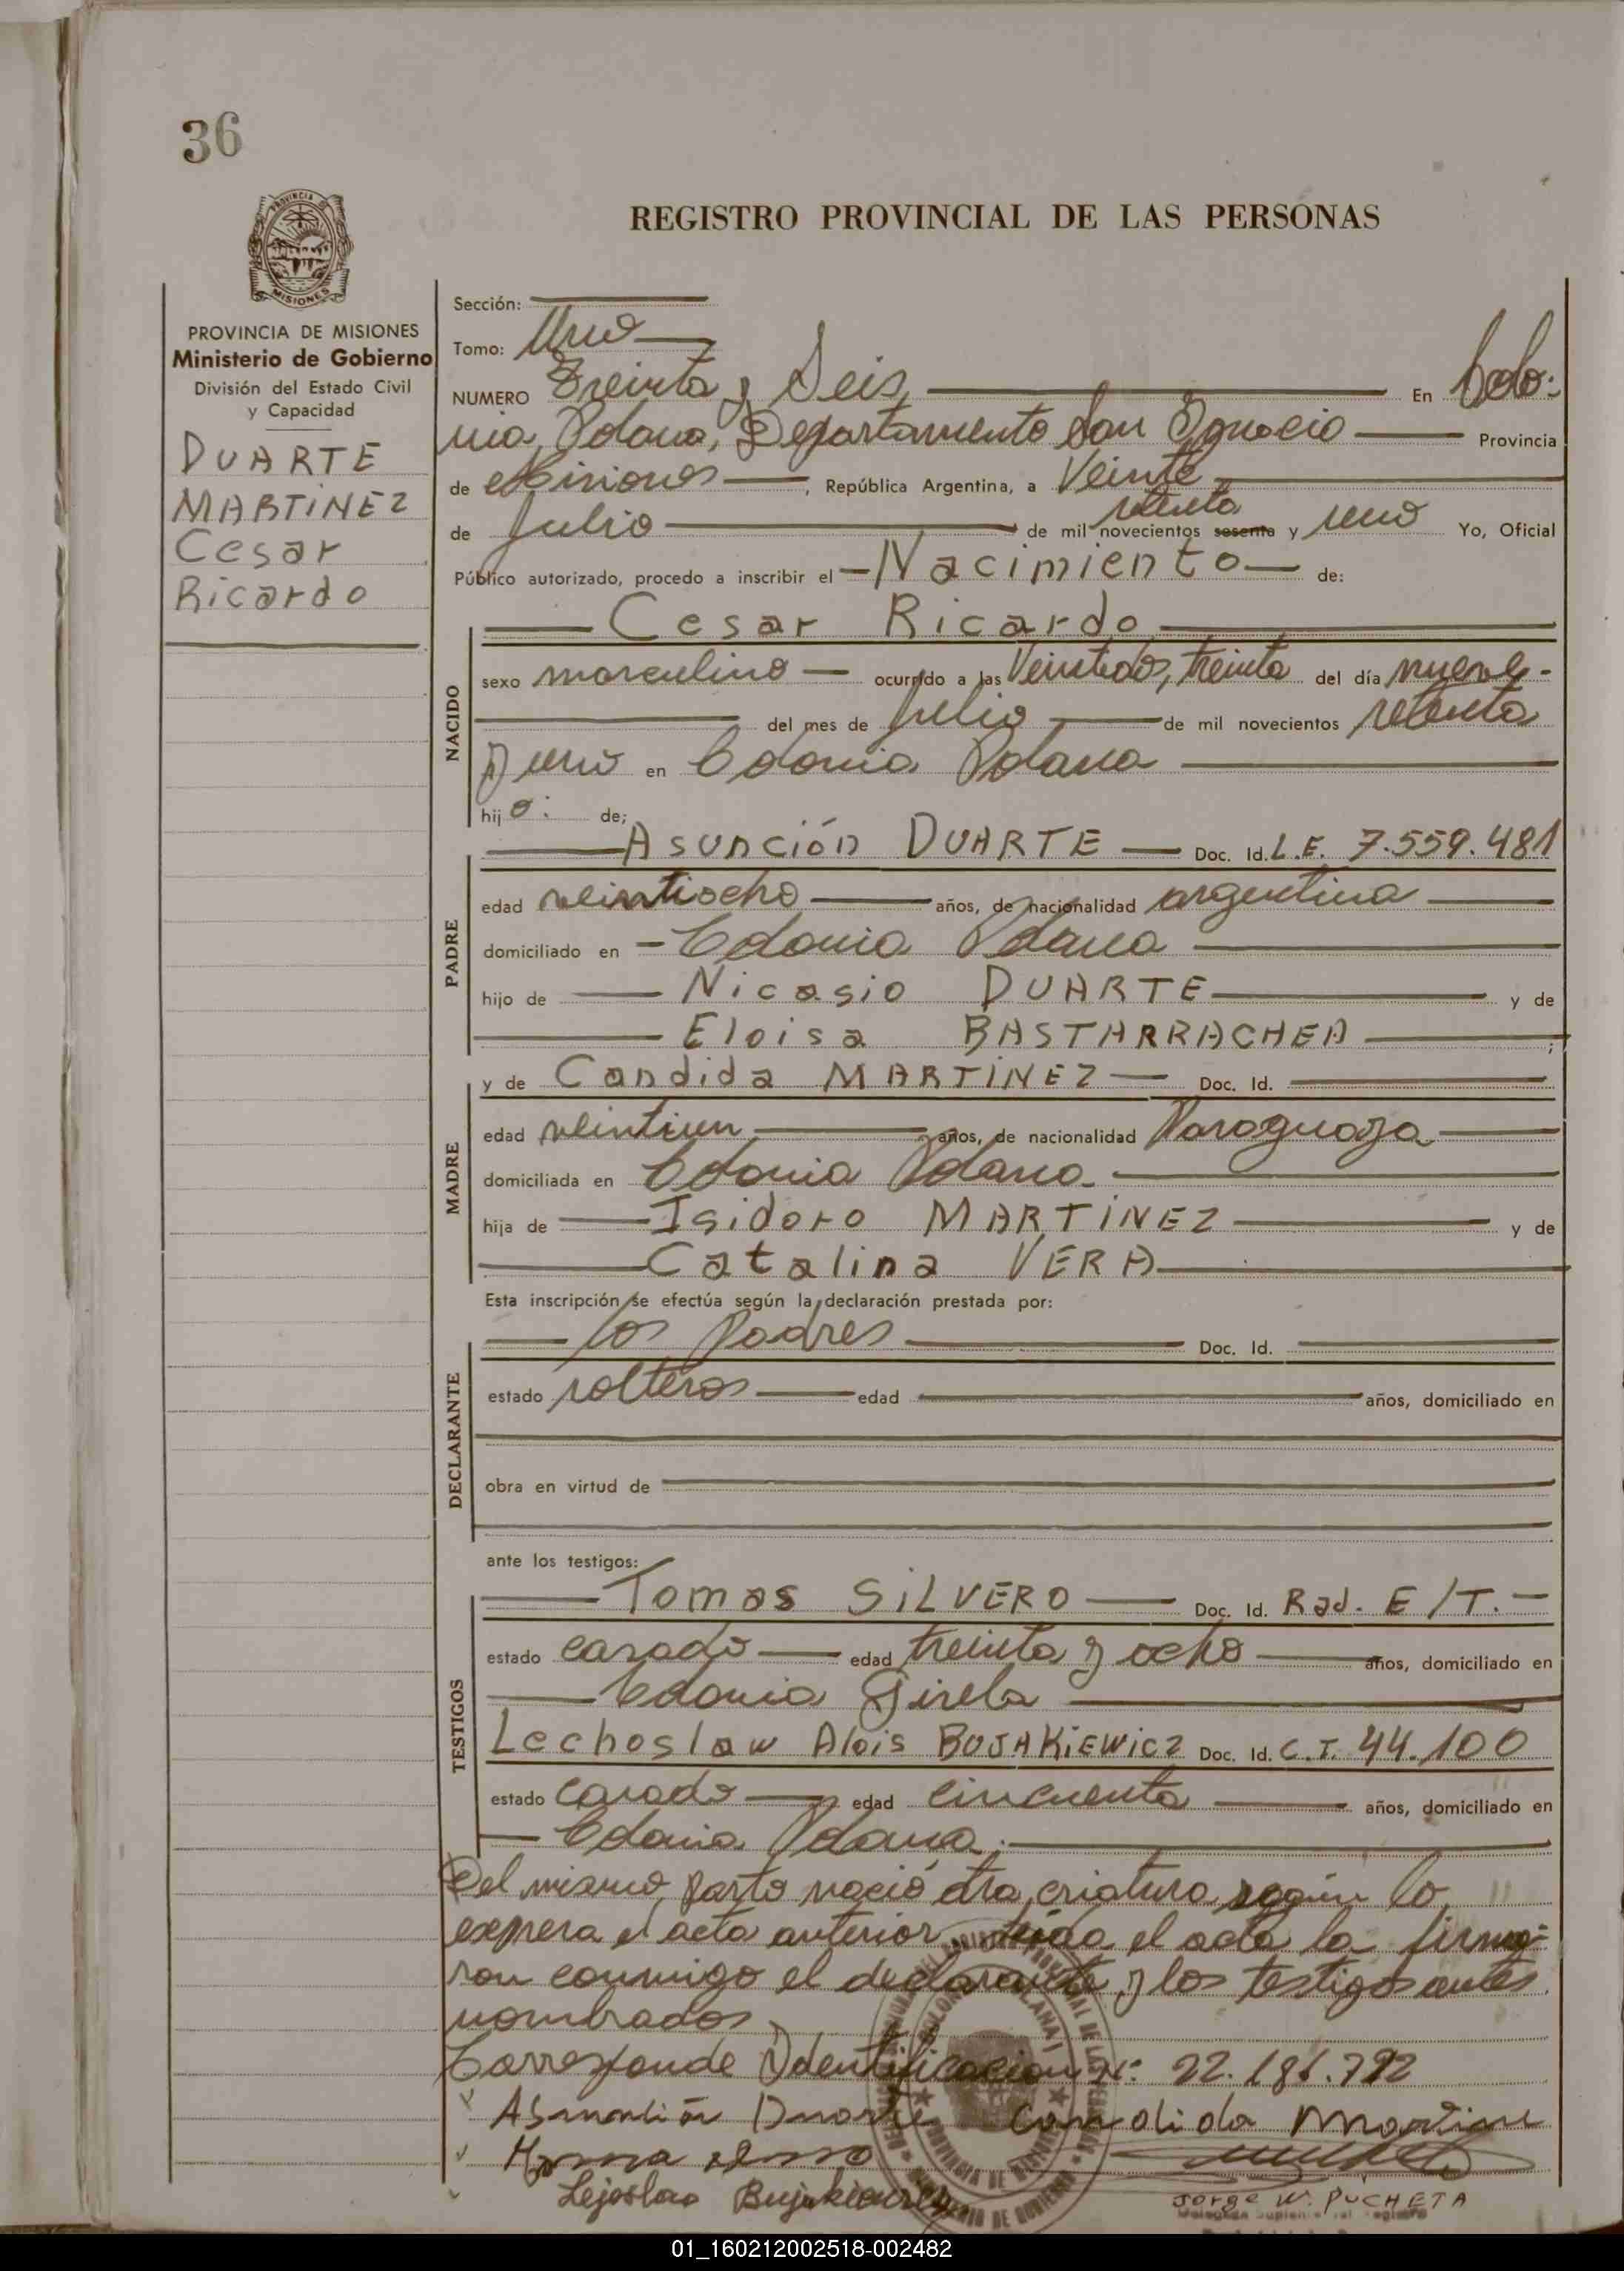 36
REGISTRO PROVINCIAL DE LAS PERSONAS
PROVINCIA DE MISIONES
Ministerio de Gobierno
División del Estado Civil
y Capacidad
DUARTE
MARTINEZ
Cesar
Ricardo
Sección:
Tomo: Uno
NUMERO Treinta y Seis En Colo:
nia Polana, Departamento San Ignacio Provincia
de Misiones, República Argentina, a Veinte
setenta
de Julio de mil novecientos sesenta y uno Yo, Oficial
Público autorizado, procedo a inscribir el Nacimiento de:
Cesar Ricardo
NACIDO
sexo masculino ocurrido a las Veintidos, treinta del día nueve
del mes de Julio de mil novecientos setenta
y uno en Colonia Polana
hijo: de;
Asunción DUARTE Doc. Id. L.E. 7.559.481
PADRE
edad veintiocho años, de nacionalidad argentina
domiciliado en Colonia Polana
hijo de Nicasio DUARTE y de
Eloisa BASTARRACHEA ;
y de Candida MARTINEZ Doc. Id.
MADRE
edad veintiun años, de nacionalidad Paraguaya
domiciliada en Colonia Polana
hija de Isidoro MARTINEZ y de
Catalina VERA
Esta inscripción se efectúa según la declaración prestada por:
los Padres Doc. Id.
DECLARANTE
estado solteros edad años, domiciliado en
obra en virtud de
ante los testigos:
Tomas SILVERO Doc. Id. Rad. E/T.-
TESTIGOS
estado casado edad treinta y ocho años, domiciliado en
Colonia Gisela
Lechoslaw Alois BUJAKIEWICZ Doc. Id. C.I. 44.100
estado Casado edad Cincuenta años, domiciliado en
Colonia Polana.
Del mismo parto nació otra criatura según lo
expresa el acta anterior, leída el acta la firma=
ron conmigo el declarante y los testigos antes
nombrados
Corresponde Identificación N°: 22.181.792
Asunción Duarte Candida Martine
Lejoslao
Jorge W. PUCHETA
01_160212002518-002482